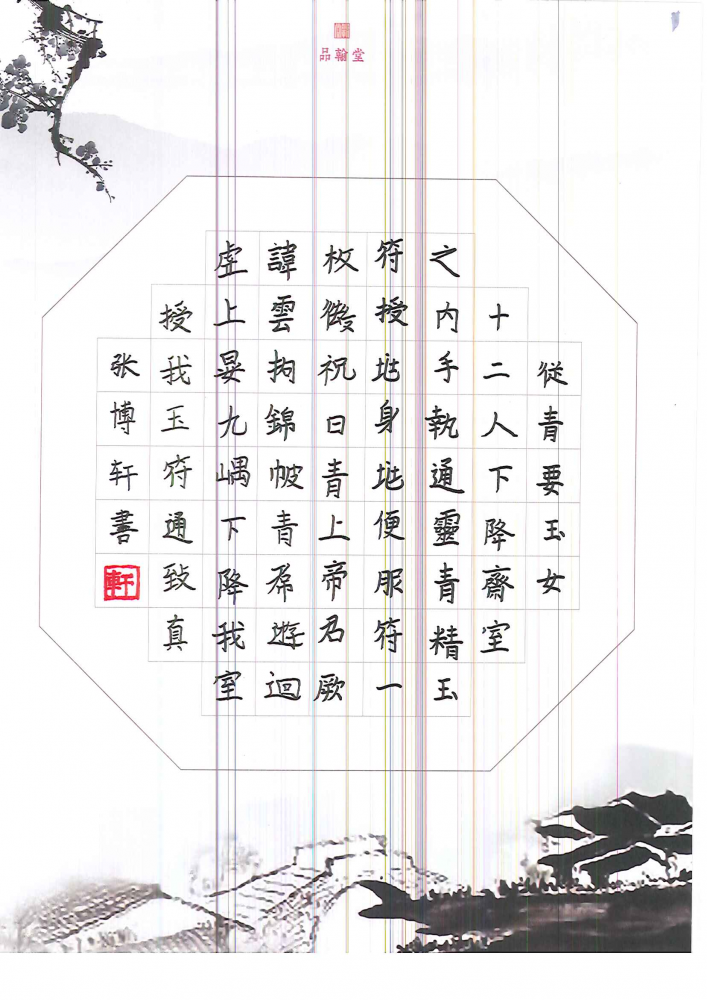 品翰堂
從青要玉女
十二人下降齋室
之内手執通靈青精玉
符授兆身兆便服符一
枚微祝曰青上帝君厥
諱雲拘錦帔青帬遊迴
虛上晏九嵎下降我室
授我玉符通致真
张博轩書
軒